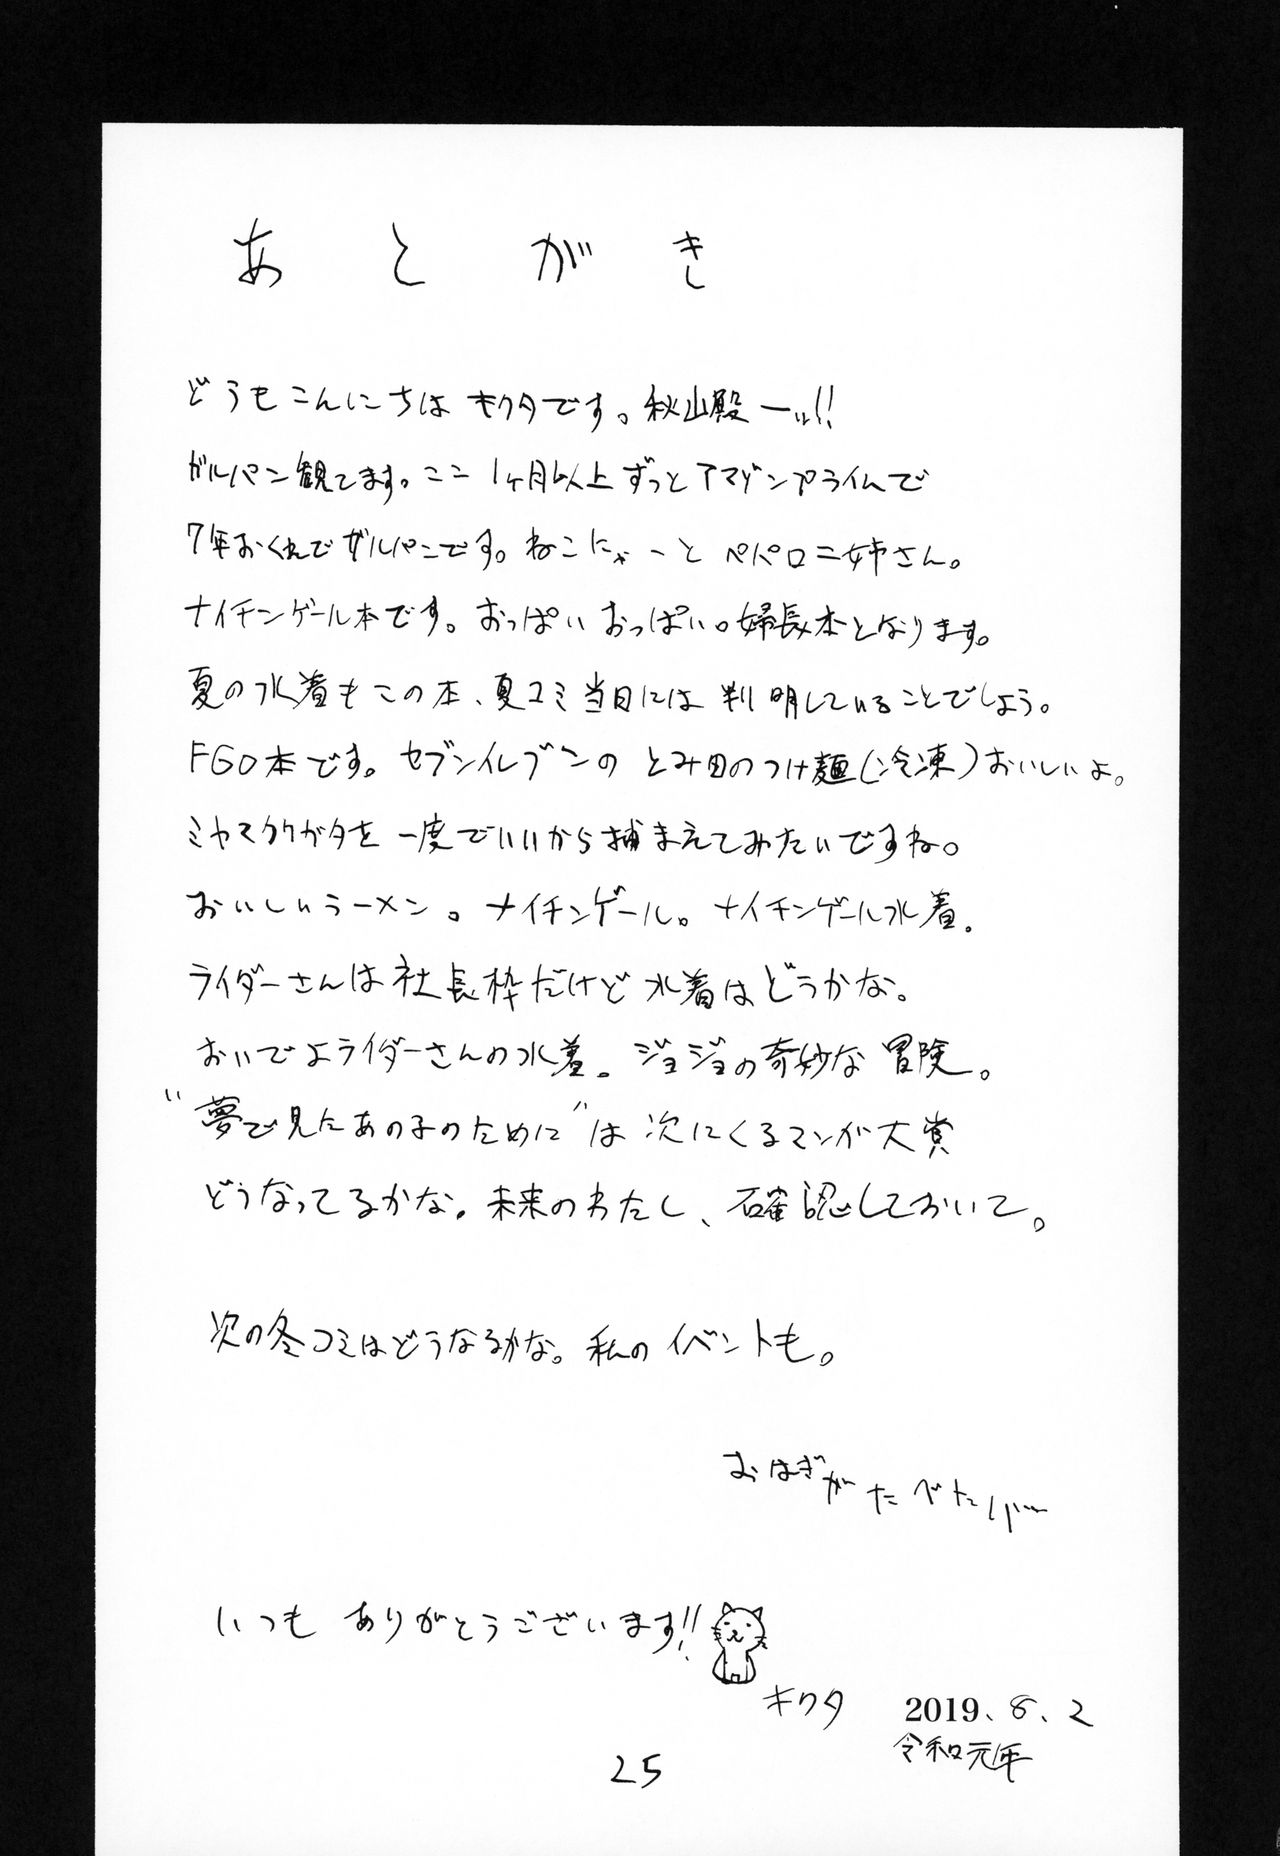 あとがき
どうもこんにちは キクタです。秋山殿ーッ!!
ガルパン観てます。ここ1ヶ月以上ずっとアマゾンプライムで
7年おくれでガルパンです。ねこにゃーと ペパロニ姉さん。
ナイチンゲール本です。おっぱいおっぱい。婦長本となります。
夏の水着もこの本、夏コミ当日には判明していることでしょう。
FGO本です。セブンイレブンの とみ田のつけ麺(冷凍)おいしいよ。
ミヤマクワガタを一度でいいから捕まえてみたいですね。
おいしいラーメン。ナイチンゲール。ナイチンゲール水着。
ライダーさんは社長枠だけど水着はどうかな。
おいでよライダーさんの水着。ジョジョの奇妙な冒険。
"夢で見たあの子のために"は次にくるマンガ大賞
どうなってるかな。未来のわたし、確認しておいて。
次の冬コミはどうなるかな。私のイベントも。
おはぎがたべたい
いつもありがとうございます!!
キクタ 2019、8、2
令和元年
25